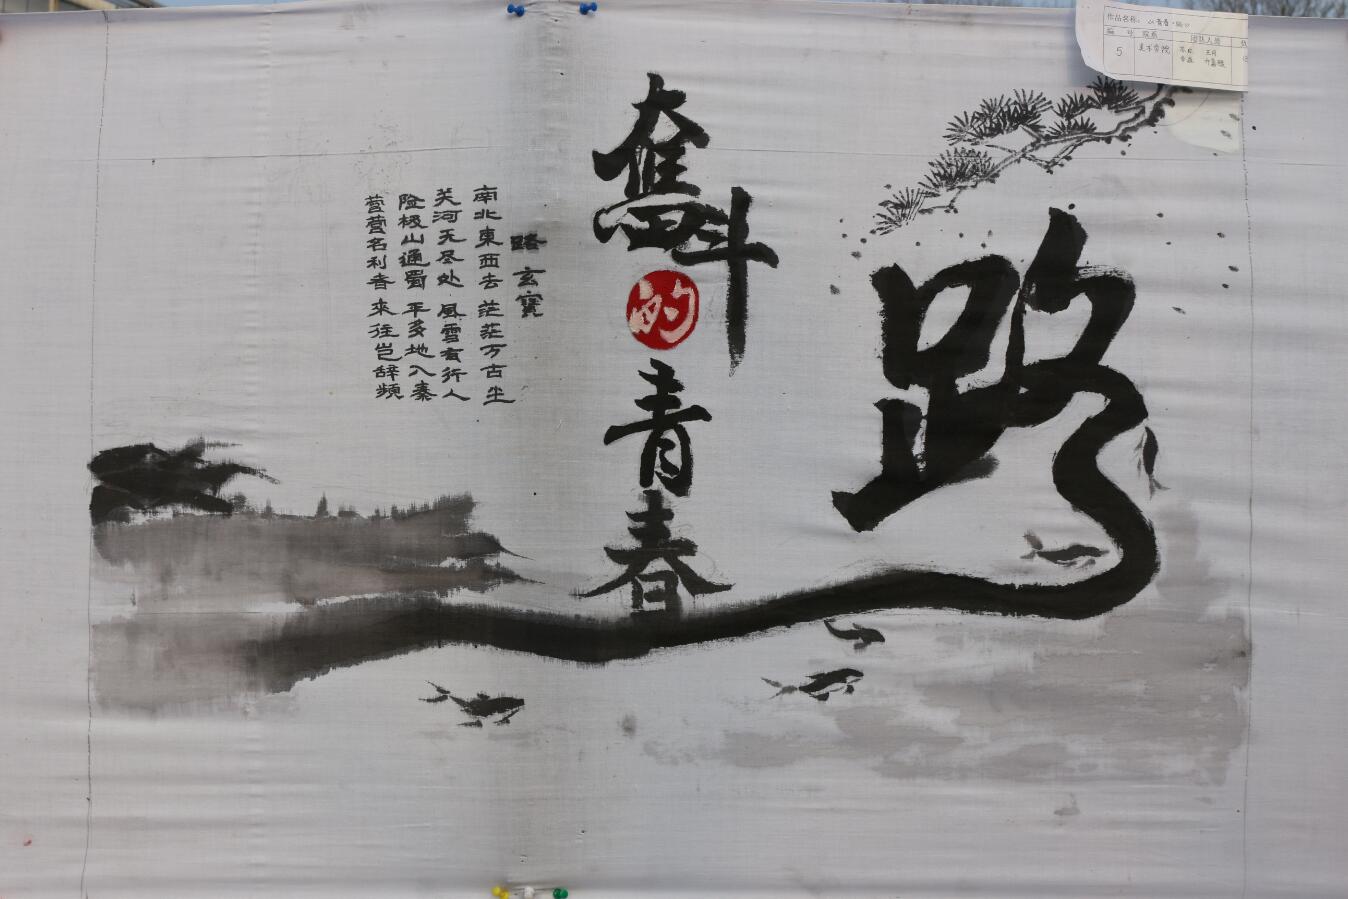 路
奋斗的青春
路 玄寳
南北東西去 茫茫万古尘
关河无尽处 風雪有行人
险极山通蜀 平多地入秦
营营名利者 來往岂辞頻
作品名称:
编号 院系 团队人员
5 美术学院